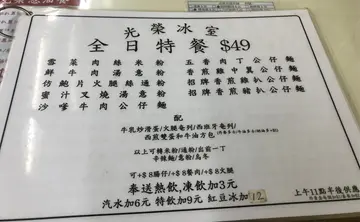 光榮冰室
全日特餐 $49
雪菜肉絲米粉
五香肉丁公仔麵
鮮牛肉湯意粉
香煎雞中翼公仔麵
仿鮑片火腿絲通粉
招牌香煎雞扒公仔麵
蜜汁叉燒湯意粉
招牌香煎豬扒公仔麵
沙嗲牛肉公仔麵
配
牛乳炒滑蛋/火腿奄列/西班牙奄列/
西煎雙蛋和牛油方包
以上可轉米粉/通粉/出前一丁
辛辣麵/意粉/烏冬
可+$8腸仔/+$8餐肉/+$8火腿
奉送熱飲,凍飲加3元
汽水加6元 特飲加9元 紅豆冰加12
上午11點半後供應